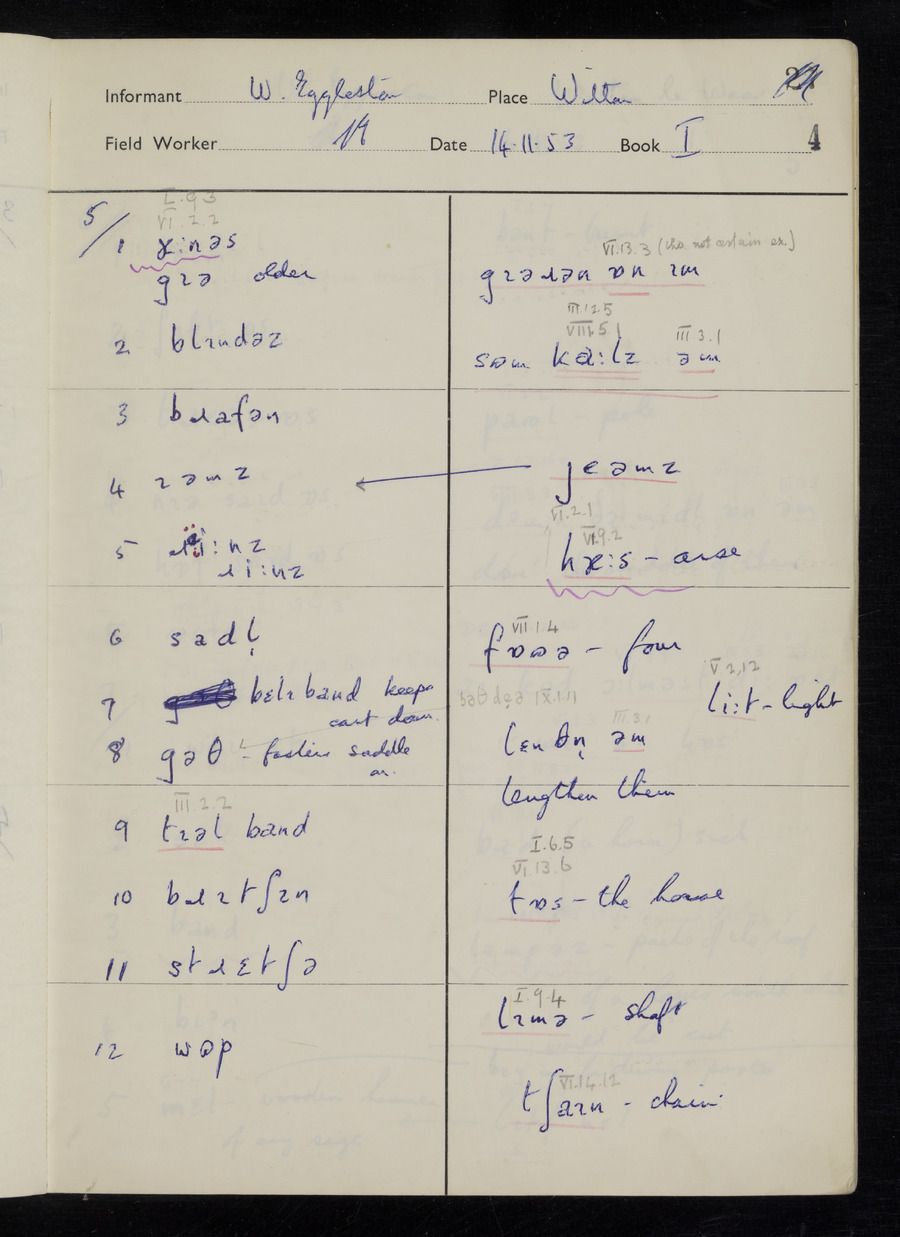 Informant W. Eggleston Place Witton
Field Worker Date 14.11.53 Book I 4
5/
I.9.3
VI.2.2
1
gɪə older
VI.13.3 (tho. not certain ex.)
gɪəɹən ɒn ɪm
2 blɪndəz
III.12.5
VIII.5.1 III.3.1
səm əm
3 bɹafən
4 ɪəmz
jeəmz
5 ɹi:nz
VI.2.1
VI.9.2
6 sadl̩
VII.1.4
fɒʊə - four
7 belɪband keeps
cart down.
V.2.12
li:t - light
8 gəθ - fastens saddle
on.
IX.1.11
III.3.1
lɛnθn̩ əm
lengthen them
III.2.2
9 tɪəl band
I.6.5
VI.13.6
10 bɹɪtʃɪn
tɒs - the horse
11 stɹɛtʃə
I.9.4
lɪmə - shaft
12 wɒp
VI.14.12
tʃaɪn - chain